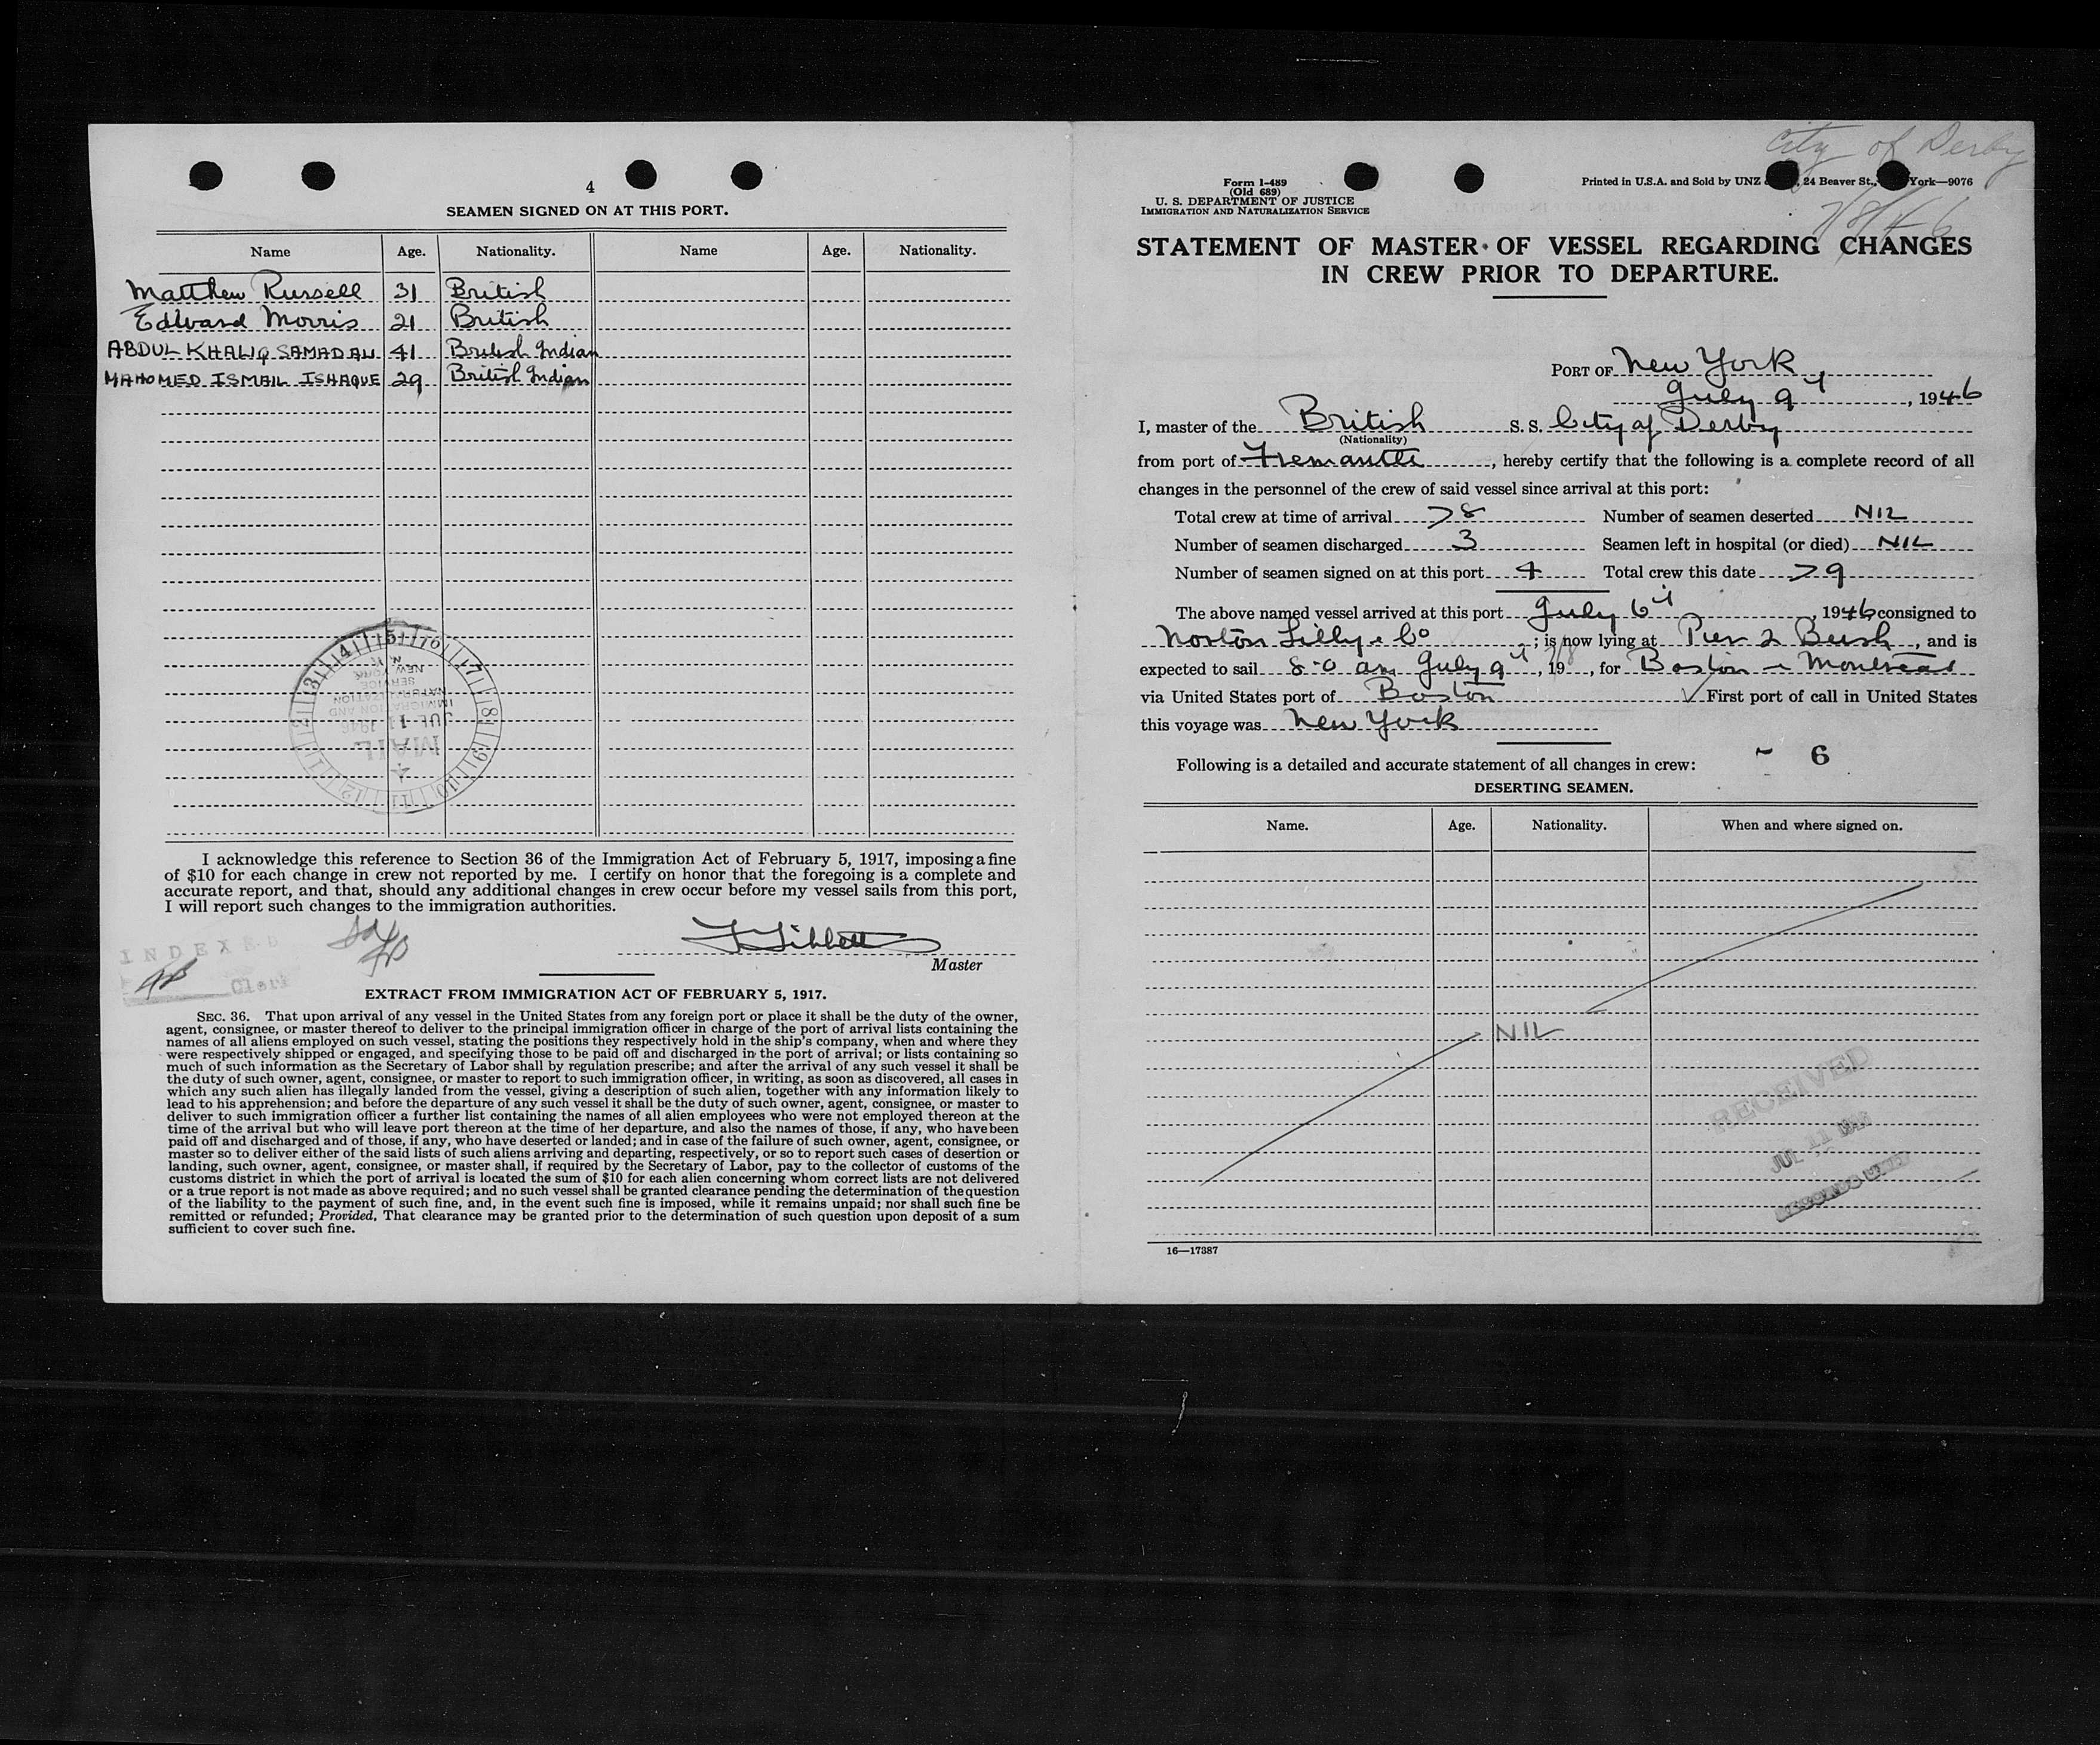 4
SEAMEN SIGNED ON AT THIS PORT.
Name Age. Nationality. Name Age. Nationality.
Matthew Russell 31 British
Edward Morris 21 British
ABDUL KHALIQ SAMADALI 41 British Indian
MAHOMED ISMAIL ISHAQUE 29 British Indian
IMMIGRATION AND
NATURALIZATION
SERVICE
NEW YORK
N.Y.
JUL 11 1946
MAIL
I acknowledge this reference to Section 36 of the Immigration Act of February 5, 1917, imposing a fine
of $10 for each change in crew not reported by me. I certify on honor that the foregoing is a complete and
accurate report, and that, should any additional changes in crew occur before my vessel sails from this port,
I will report such changes to the immigration authorities.
INDEXED
Clerk
Master
EXTRACT FROM IMMIGRATION ACT OF FEBRUARY 5, 1917.
SEC. 36. That upon arrival of any vessel in the United States from any foreign port or place it shall be the duty of the owner,
agent, consignee, or master thereof to deliver to the principal immigration officer in charge of the port of arrival lists containing the
names of all aliens employed on such vessel, stating the positions they respectively hold in the ship's company, when and where they
were respectively shipped or engaged, and specifying those to be paid off and discharged in the port of arrival; or lists containing so
much of such information as the Secretary of Labor shall by regulation prescribe; and after the arrival of any such vessel it shall be
the duty of such owner, agent, consignee, or master to report to such immigration officer, in writing, as soon as discovered, all cases in
which any such alien has illegally landed from the vessel, giving a description of such alien, together with any information likely to
lead to his apprehension; and before the departure of any such vessel it shall be the duty of such owner, agent, consignee, or master to
deliver to such immigration officer a further list containing the names of all alien employees who were not employed thereon at the
time of the arrival but who will leave port thereon at the time of her departure, and also the names of those, if any, who have been
paid off and discharged and of those, if any, who have deserted or landed; and in case of the failure of such owner, agent, consignee, or
master so to deliver either of the said lists of such aliens arriving and departing, respectively, or so to report such cases of desertion or
landing, such owner, agent, consignee, or master shall, if required by the Secretary of Labor, pay to the collector of customs of the
customs district in which the port of arrival is located the sum of $10 for each alien concerning whom correct lists are not delivered
or a true report is not made as above required; and no such vessel shall be granted clearance pending the determination of the question
of the liability to the payment of such fine, and, in the event such fine is imposed, while it remains unpaid; nor shall such fine be
remitted or refunded; Provided, That clearance may be granted prior to the determination of such question upon deposit of a sum
sufficient to cover such fine.
City of Derby
7/8/46
Form I-489
(Old 689)
U. S. DEPARTMENT OF JUSTICE
IMMIGRATION AND NATURALIZATION SERVICE
Printed in U.S.A. and Sold by UNZ 24 Beaver St., York—9076
STATEMENT OF MASTER OF VESSEL REGARDING CHANGES
IN CREW PRIOR TO DEPARTURE.
PORT OF New York
July 9th, 1946
I, master of the British S. S. City of Derby
(Nationality)
from port of Fremantle, hereby certify that the following is a complete record of all
changes in the personnel of the crew of said vessel since arrival at this port:
Total crew at time of arrival 78 Number of seamen deserted NIL
Number of seamen discharged 3 Seamen left in hospital (or died) NIL
Number of seamen signed on at this port 4 Total crew this date 79
The above named vessel arrived at this port July 6th, 1946 consigned to
Norton Lilly & Co; is now lying at Pier 2 Bush, and is
expected to sail 8-0 am July 9th, 19, for Boston & Montreal
via United States port of Boston First port of call in United States
this voyage was New York
Following is a detailed and accurate statement of all changes in crew: - 6
DESERTING SEAMEN.
Name. Age. Nationality. When and where signed on.
NIL
RECEIVED
JUL 11 1946
RECORDS UNIT
16—17387